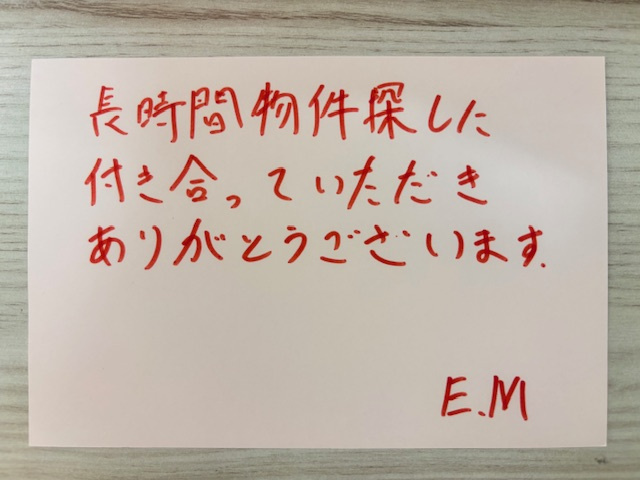 長時間物件探した
付き合っていただき
ありがとうございます.
E.M